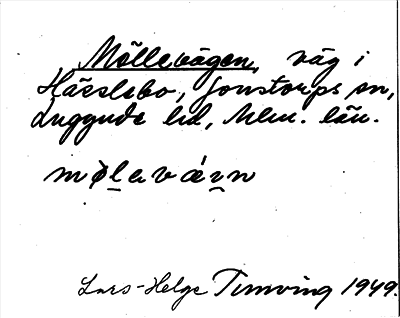 Möllevägen, väg i
Hässlebo, Jonstorps sn,
Luggude hd, Mlm. län.
møl̲avä́ɪn
Lars-Helge Timving 1949.